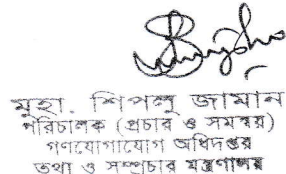 মুহা. শিপলু জামান
পরিচালক (প্রচার ও সমন্বয়)
গণযোগাযোগ অধিদপ্তর
তথ্য ও সম্প্রচার মন্ত্রণালয়